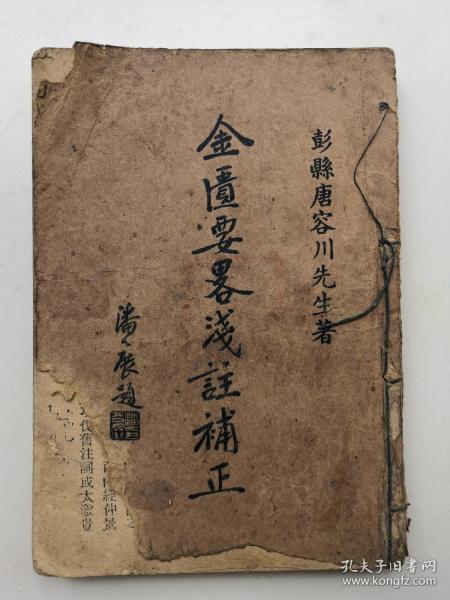 彭縣唐容川先生著
金匱要畧淺註補正
題
經仲景
舊注詞或太激豈
孔夫子旧书网
www.kongfz.com